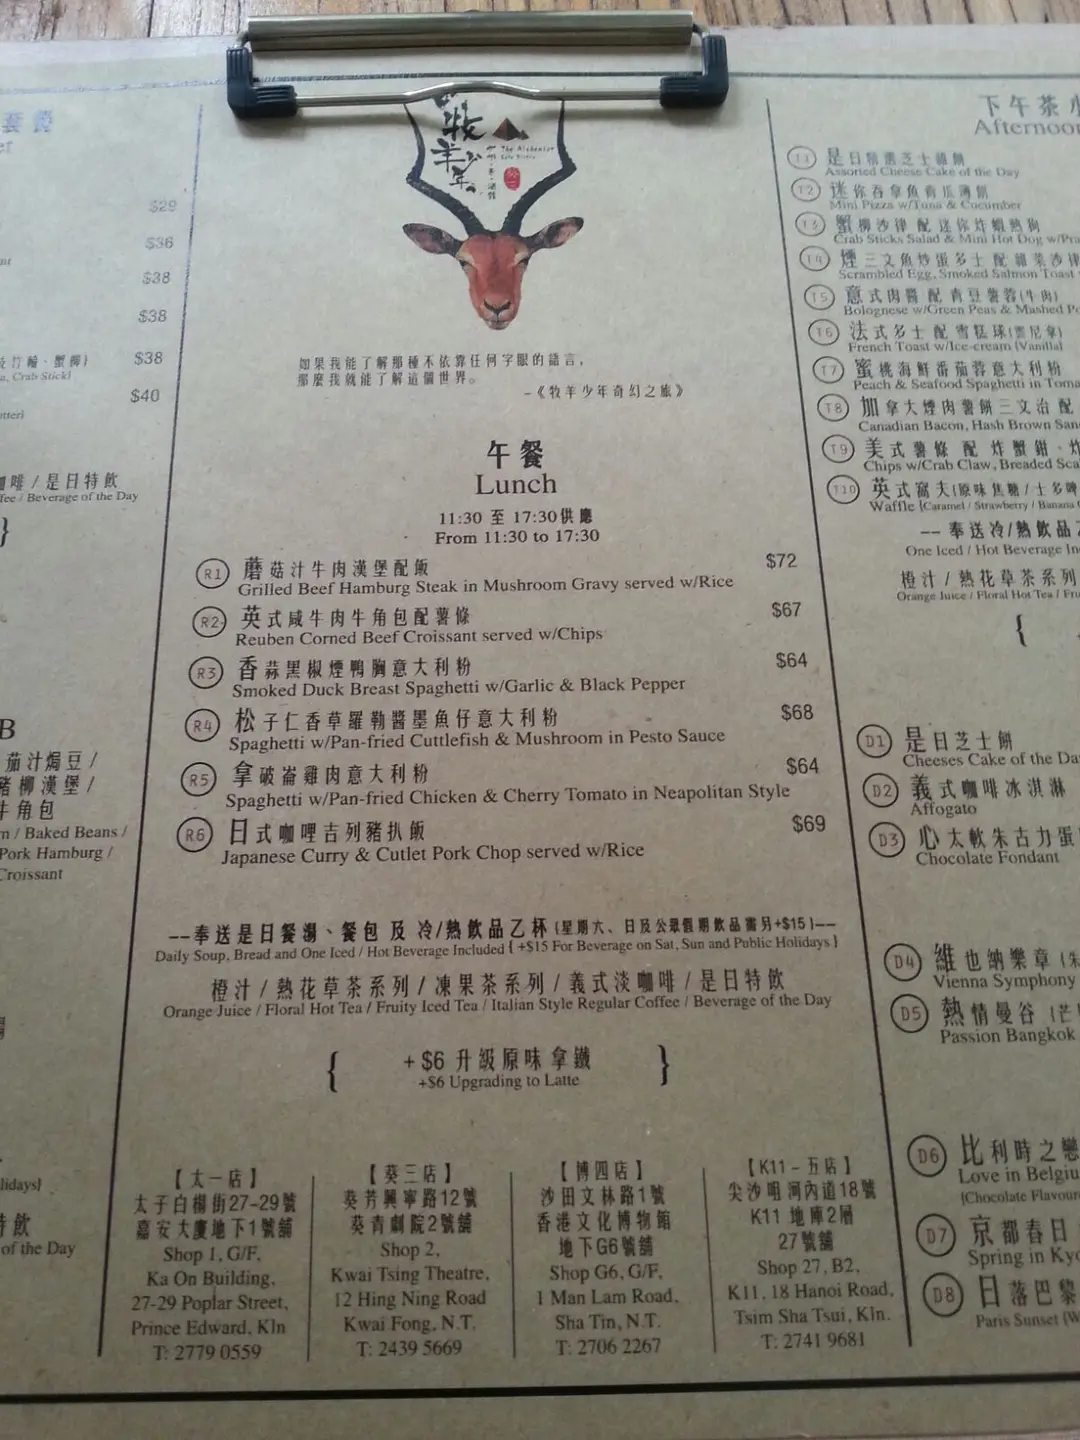 套餐
$29
$36
$38
$38
$38
a, Crab Stick]
$40
啡 / 是日特飲
fee / Beverage of the Day
}
B
茄汁焗豆 /
豬柳漢堡 /
牛角包
n / Baked Beans /
Pork Hamburg /
Croissant
lidays]
特飲
of the Day
牧羊少年
The Alchemist
Cafe Bistro
如果我能了解那種不依靠任何字眼的語言，
那麼我就能了解這個世界。
–《牧羊少年奇幻之旅》
午餐
Lunch
11:30 至 17:30供應
From 11:30 to 17:30
R1 蘑菇汁牛肉漢堡配飯 $72
Grilled Beef Hamburg Steak in Mushroom Gravy served w/Rice
R2 英式咸牛肉牛角包配薯條 $67
Reuben Corned Beef Croissant served w/Chips
R3 香蒜黑椒煙鴨胸意大利粉 $64
Smoked Duck Breast Spaghetti w/Garlic & Black Pepper
R4 松子仁香草羅勒醬墨魚仔意大利粉 $68
Spaghetti w/Pan-fried Cuttlefish & Mushroom in Pesto Sauce
R5 拿破崙雞肉意大利粉 $64
Spaghetti w/Pan-fried Chicken & Cherry Tomato in Neapolitan Style
R6 日式咖哩吉列豬扒飯 $69
Japanese Curry & Cutlet Pork Chop served w/Rice
––奉送是日餐湯、餐包 及 冷/熱飲品乙杯 [星期六、日及公眾假期飲品需另+$15 ]––
Daily Soup, Bread and One Iced / Hot Beverage Included [ +$15 For Beverage on Sat, Sun and Public Holidays ]
橙汁 / 熱花草茶系列 / 凍果茶系列 / 義式淡咖啡 / 是日特飲
Orange Juice / Floral Hot Tea / Fruity Iced Tea / Italian Style Regular Coffee / Beverage of the Day
{ +$6 升級原味拿鐵 }
+$6 Upgrading to Latte
【太一店】
太子白楊街27-29號
嘉安大廈地下1號舖
Shop 1, G/F,
Ka On Building,
27-29 Poplar Street,
Prince Edward, Kln
T: 2779 0559
【葵三店】
葵芳興寧路12號
葵青劇院2號舖
Shop 2,
Kwai Tsing Theatre,
12 Hing Ning Road
Kwai Fong, N.T.
T: 2439 5669
【博四店】
沙田文林路1號
香港文化博物館
地下G6號舖
Shop G6, G/F,
1 Man Lam Road,
Sha Tin, N.T.
T: 2706 2267
【K11－五店】
尖沙咀河內道18號
K11 地庫2層
27號舖
Shop 27, B2,
K11, 18 Hanoi Road,
Tsim Sha Tsui, Kln.
T: 2741 9681
下午茶小
Afternoon
T1 是日精選芝士餅
Assorted Cheese Cake of the Day
T2 迷你吞拿魚青瓜薄餅
Mini Pizza w/Tuna & Cucumber
T3 蟹柳沙律 配 迷你炸蝦熱狗
Crab Sticks Salad & Mini Hot Dog w/Pra
T4 煙三文魚炒蛋多士 配 雜菜沙律
Scrambled Egg, Smoked Salmon Toast
T5 意式肉醬 配 青豆薯蓉[牛肉]
Bolognese w/Green Peas & Mashed Po
T6 法式多士 配 雪糕球[雲尼拿]
French Toast w/Ice-cream [Vanilla]
T7 蜜桃海鮮番茄蓉意大利粉
Peach & Seafood Spaghetti in Toma
T8 加拿大煙肉薯餅三文治 配
Canadian Bacon, Hash Brown San
T9 美式薯條 配 炸蟹鉗、炸
Chips w/Crab Claw, Breaded Sca
T10 英式窩夫[原味焦糖 / 士多啤
Waffle [Caramel / Strawberry / Banana
–– 奉送冷/熱飲品乙
One Iced / Hot Beverage In
橙汁 / 熱花草茶系列
Orange Juice / Floral Hot Tea / Fru
{
D1 是日芝士餅
Cheeses Cake of the Da
D2 義式咖啡冰淇淋
Affogato
D3 心太軟朱古力蛋
Chocolate Fondant
D4 維也納樂章 [朱
Vienna Symphony
D5 熱情曼谷 [芒
Passion Bangkok
D6 比利時之戀
Love in Belgiu
[Chocolate Flavour
D7 京都春日
Spring in Kyo
D8 日落巴黎
Paris Sunset [W